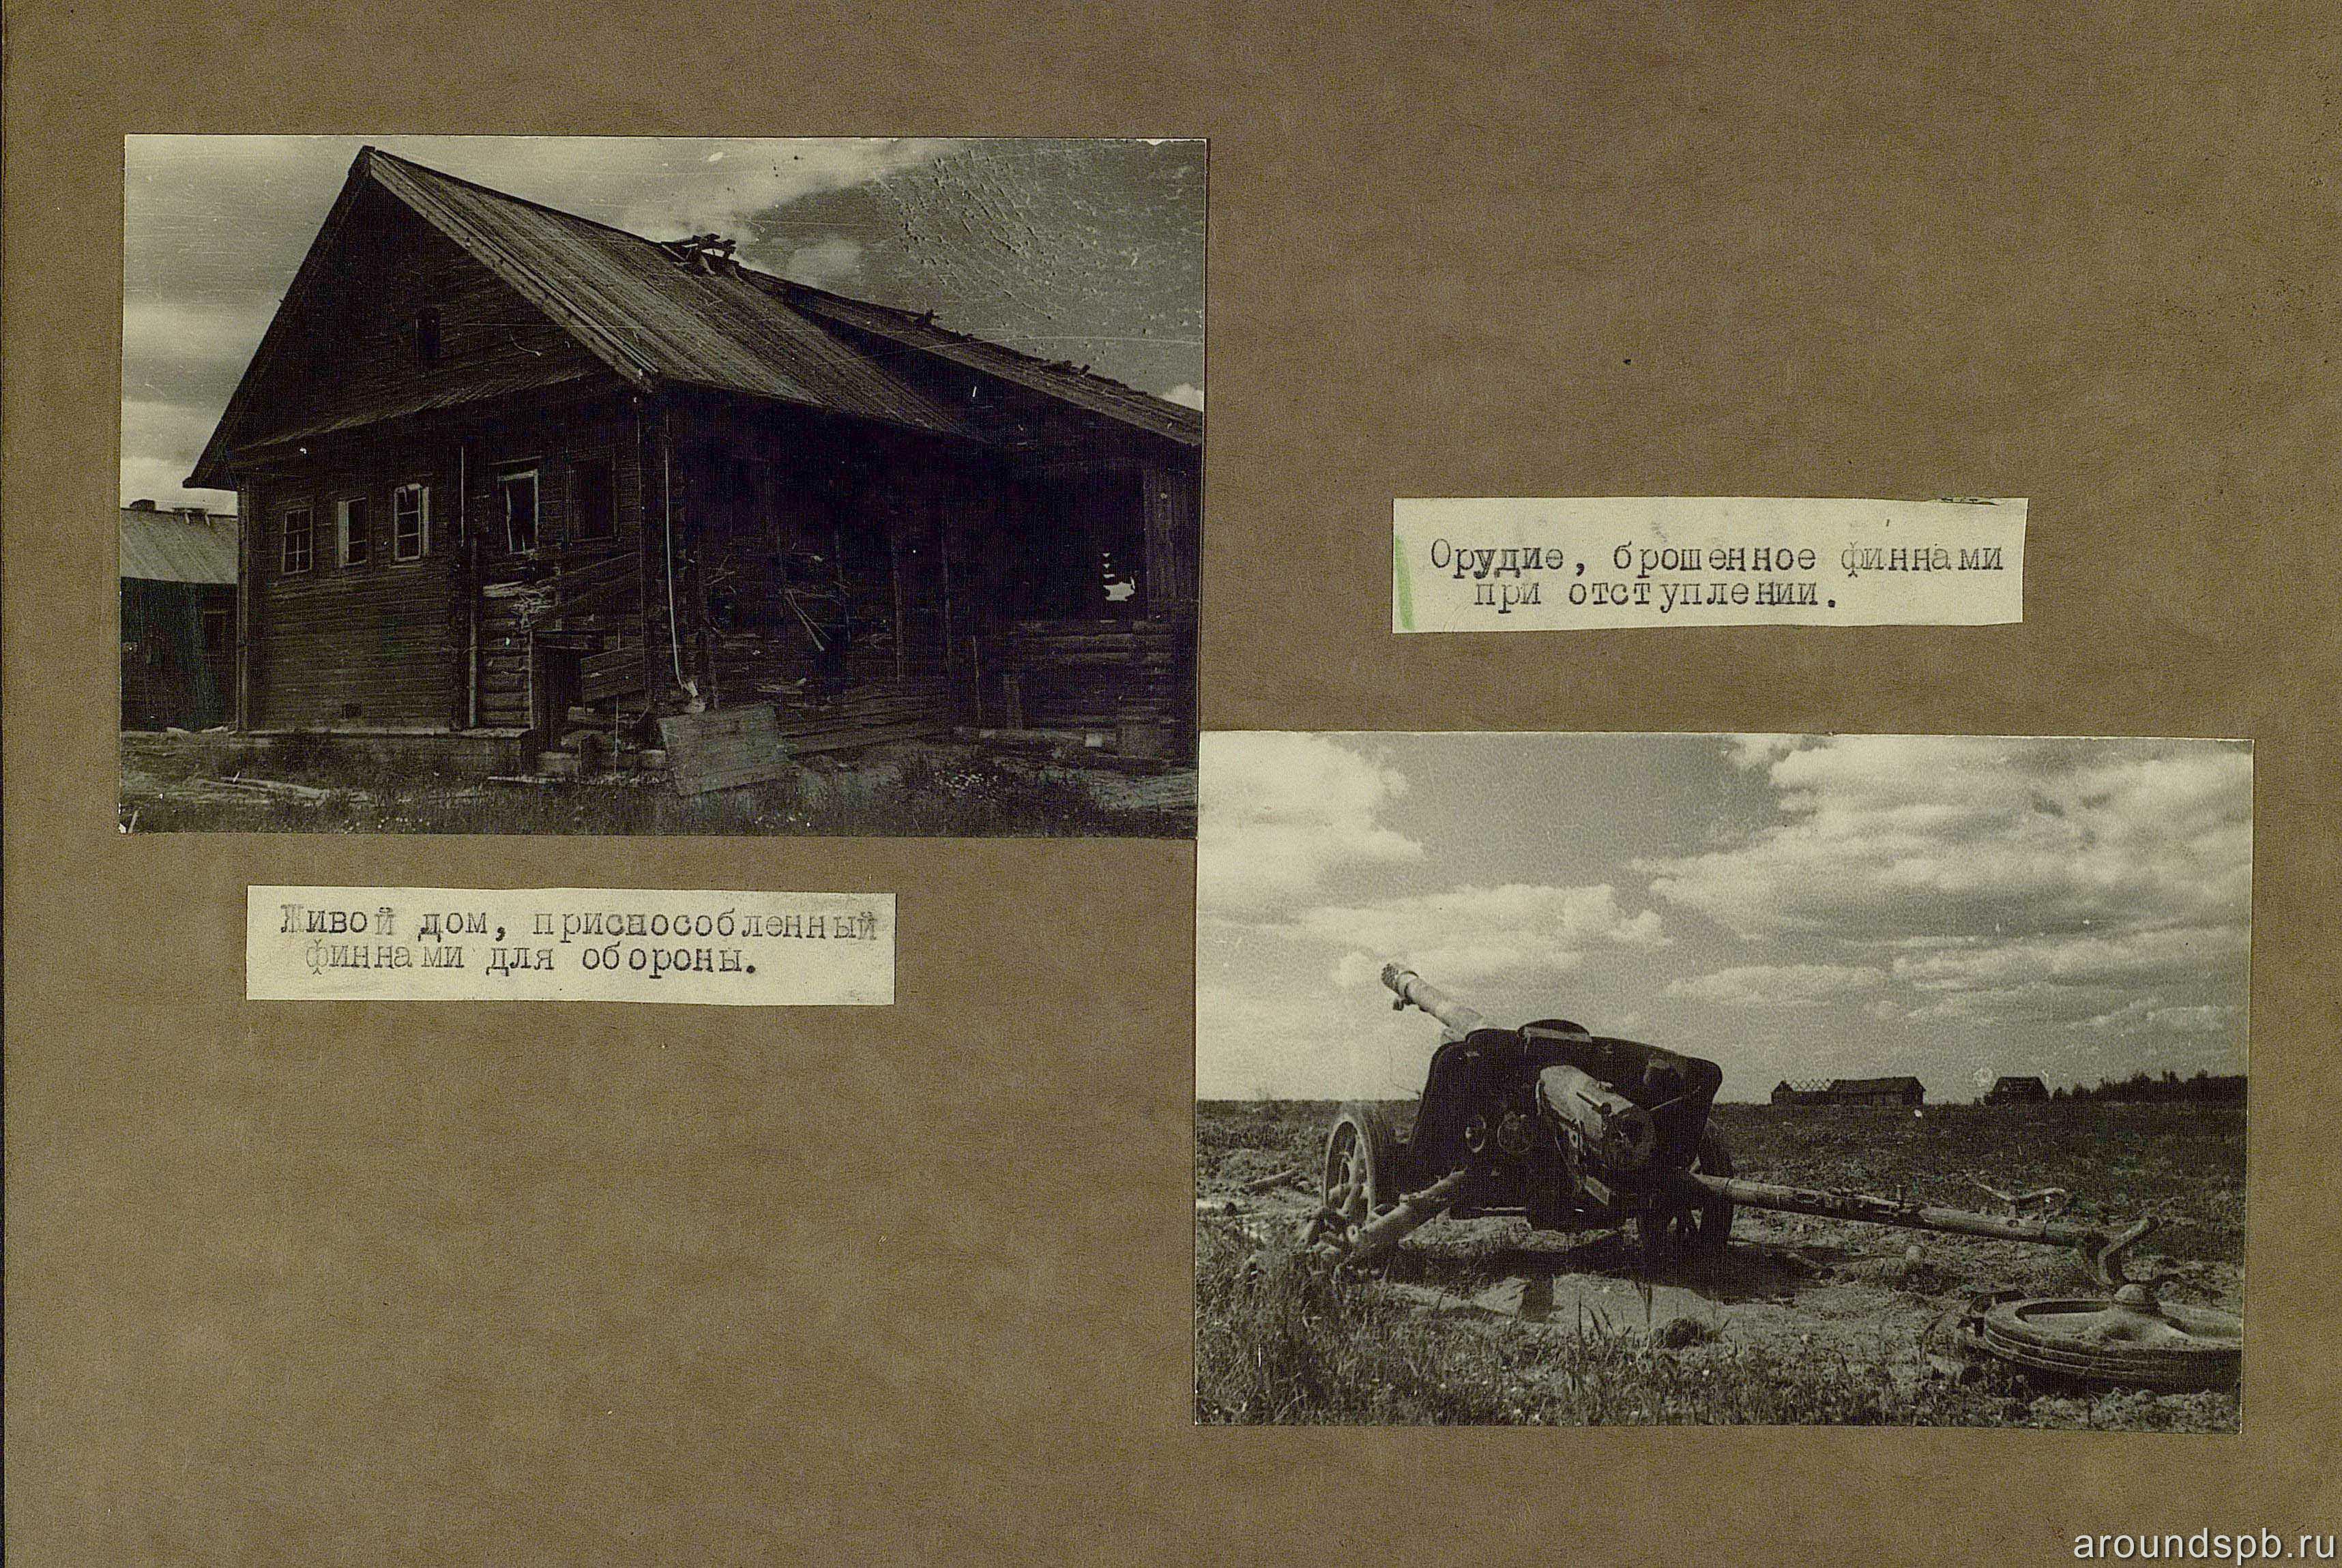 Орудие, брошенное финнами
при отступлении.
Живой дом, приспособленный
финнами для обороны.
aroundspb.ru